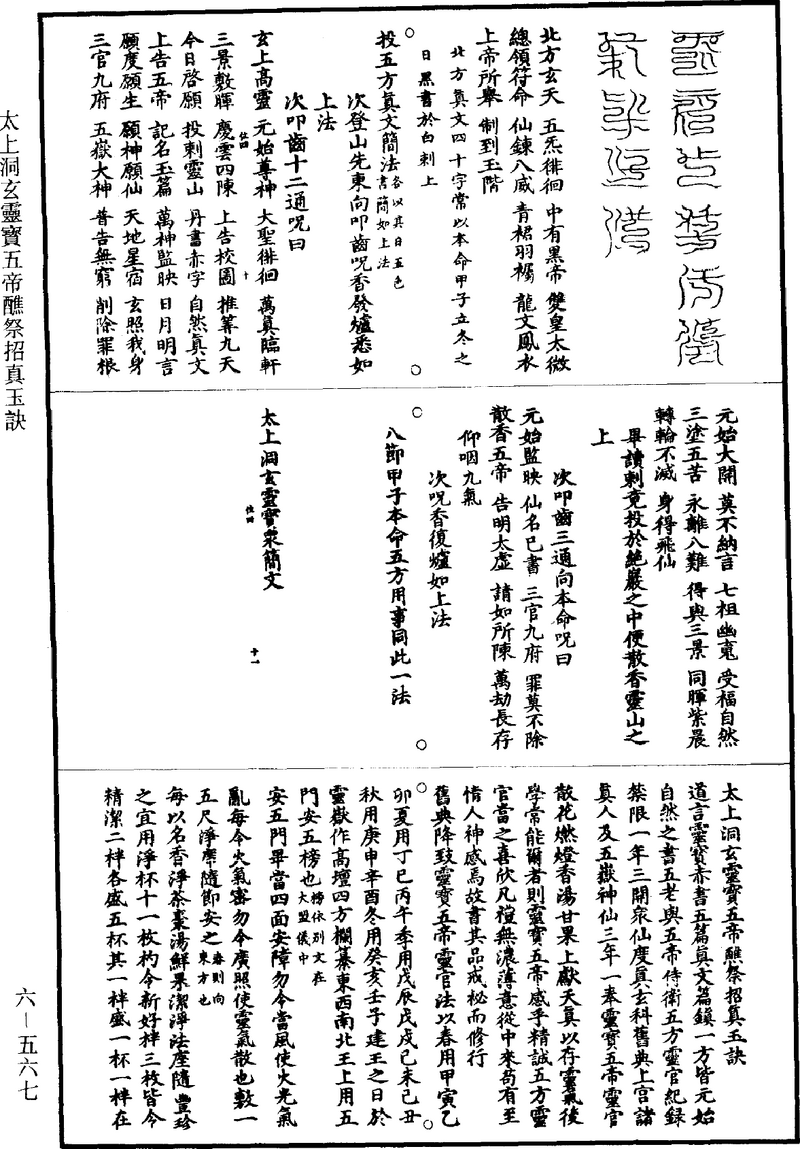 北方玄天　五炁徘徊　中有黑帝　雙皇太微
總領符命　仙鍊八威　青裙羽襡　龍文鳳衣
上帝所舉　制到玉階
北方真文四十字常以本命甲子立冬之
日黑書於白刺上
投五方真文簡法各以其日五色書簡如上法
次登山先東向叩齒咒香發爐悉如
上法
次叩齒十二通咒曰
玄上高靈　元始尊神　大聖徘徊　萬真臨軒
三景敷暉　慶雲四陳　上告校圖　推筭九天
今日啓願　投刺靈山　丹書赤字　自然真文
上告五帝　記名玉篇　萬神監映　日月明言
願度願生　願神願仙　天地星宿　玄照我身
三官九府　五嶽大神　普告無窮　削除罪根
元始大開　莫不納言　七祖幽魂　受福自然
三塗五苦　永離八難　得與三景　同暉紫晨
轉輪不滅　身得飛仙
畢讀刺竟投於絶巖之中便散香靈山之
上
次叩齒三通向本命咒曰
元始監映　仙名已書　三官九府　罪莫不除
散香五帝　告明太虛　請如所陳　萬劫長存
仰咽九氣
次咒香復爐如上法
八節甲子本命五方用事同此一法
太上洞玄靈寶衆簡文
十一
太上洞玄靈寶五帝醮祭招真玉訣
道言靈寶赤書五篇真文篇鎮一方皆元始
自然之書五老與五帝侍衛五方靈官紀録
禁限一年三開衆仙度真玄科舊典上宮諸
真人及五嶽神仙三年一奉靈寶五帝靈官
散花燃燈香湯甘果上獻天真以存靈氣後
學常能爾者則靈寶五帝感乎精誠五方靈
官當之喜欣凡禮無濃薄意從中來苟有至
情人神感焉故書其品戒祕而修行
舊典降致靈寶五帝靈官法以春用甲寅乙
卯夏用丁巳丙午季用戊辰戊戌己未己丑
秋用庚申辛酉冬用癸亥壬子建王之日於
靈嶽作高壇四方欄纂東西南北王上用五
門安五榜也榜依別文在大盟儀中
安五門畢當四面安障勿令當風使火光氣
亂每令火氣審勿令廣照使靈氣散也敷一
五尺淨席隨節安之春則向東方也
每以名香淨茶棗湯鮮果潔淨法座隨豐珍
之宜用淨杯十一枚杓令新好柈三枚皆令
精潔二柈各盛五杯其一柈盛一杯一柈在
太上洞玄靈寶五帝醮祭招真玉訣
六－五六七